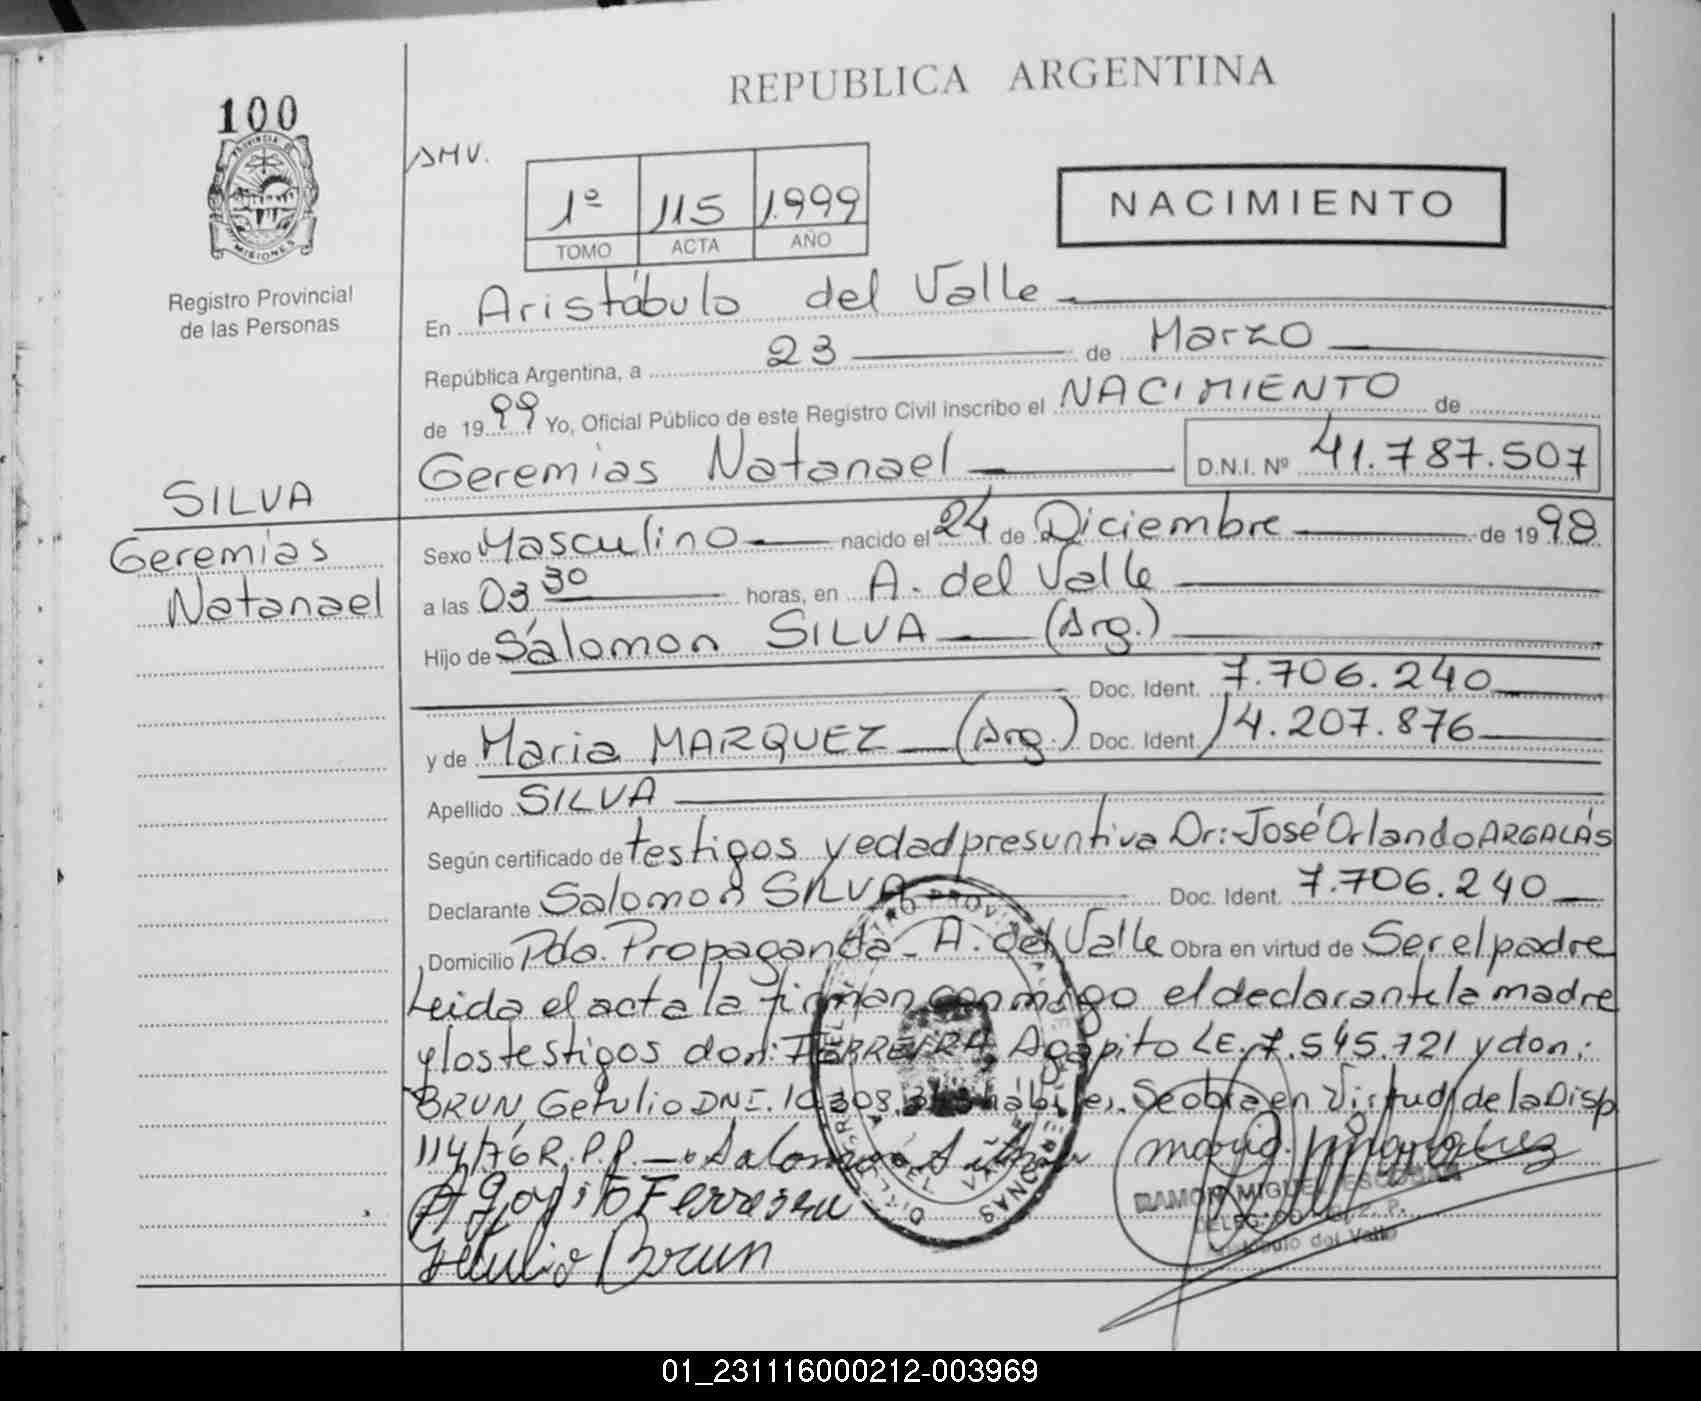 REPUBLICA ARGENTINA
100
PROVINCIA DE
MISIONES
Registro Provincial
de las Personas
AMV.
1º 115 1.999
TOMO ACTA AÑO
NACIMIENTO
En Aristóbulo del Valle
República Argentina, a 23 de Marzo
de 1999 Yo, Oficial Público de este Registro Civil inscribo el NACIMIENTO de
Geremías Natanael D.N.I. Nº 41.787.507
SILVA
Geremías
Natanael
Sexo Masculino nacido el 24 de Diciembre de 1998
a las 03 30 horas, en A. del Valle
Hijo de Sálomon SILVA (Arg.)
Doc. Ident. 7.706.240
y de Maria MARQUEZ (Arg.) Doc. Ident. 14.207.876
Apellido SILVA
Según certificado de testigos y edad presuntiva Dr: José Orlando ARGALÁS
Declarante Salomon SILVA Doc. Ident. 7.706.240
Domicilio Pdo. Propaganda - A. del Valle Obra en virtud de Ser el padre
Leida el acta la firman conmigo el declarante la madre
y los testigos don: FERREYRA, Agapito LE. 7.545.721 y don:
BRUN Getulio DNI. hábiles. Se obra en Virtud de la Disp
114/76 R.P.P. Salomon Silva maria marquez
Agapito Ferreira
RAMON MIGUEL ESCOBAR
Getulio Brun
01_231116000212-003969